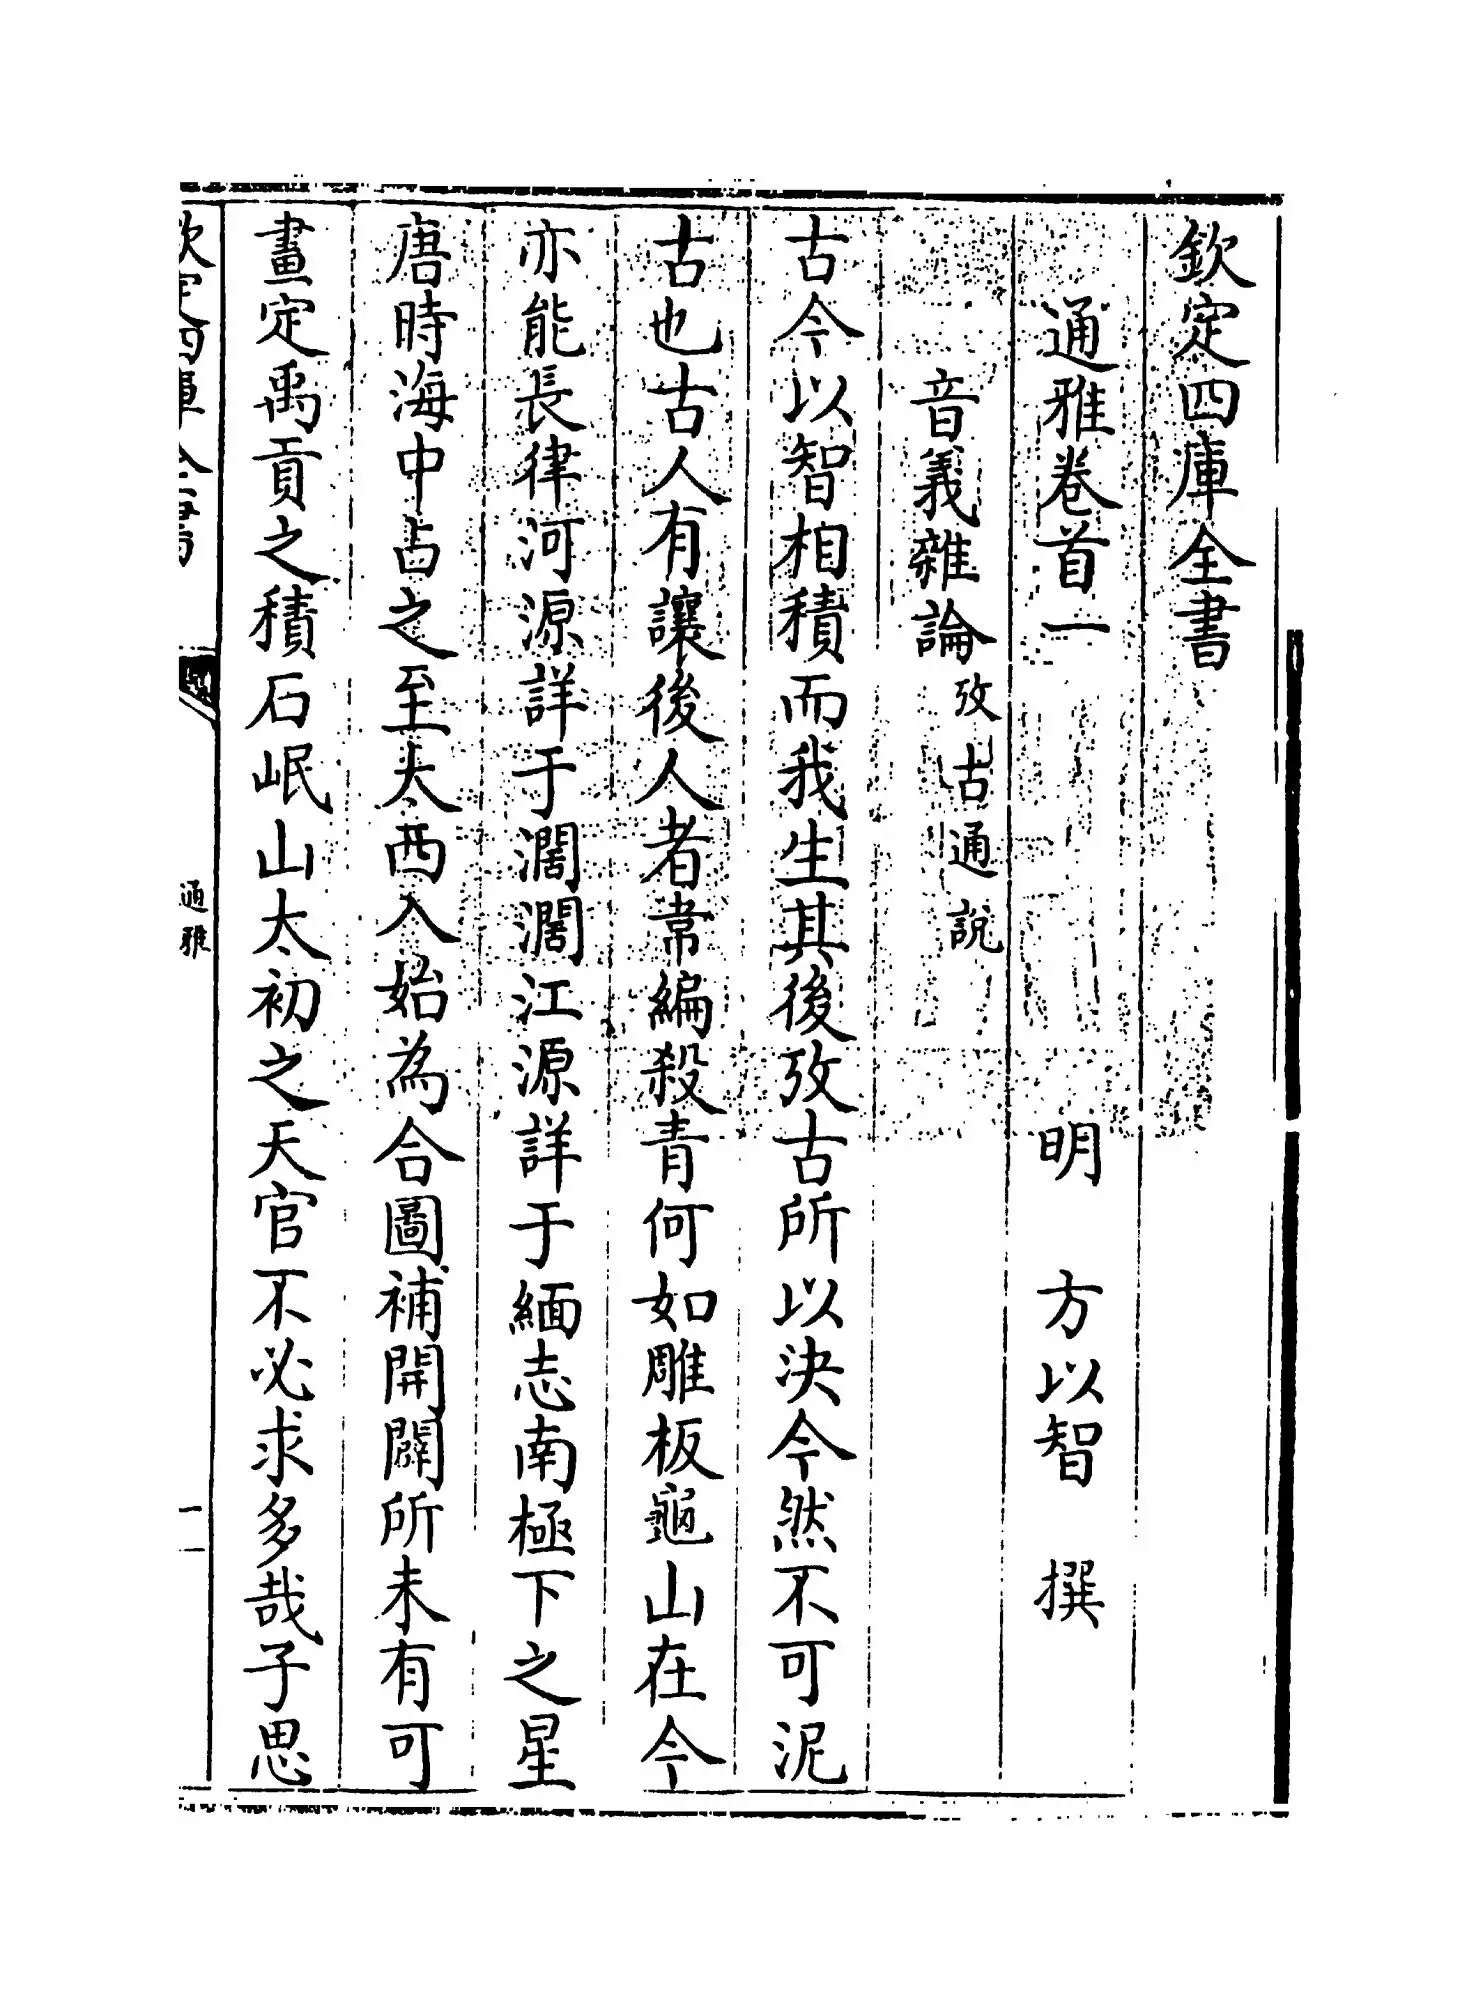 欽定四庫全書
通雅卷首一 明 方以智 撰
音義雜論 攷古通說
古今以智相積而我生其後攷古所以決今然不可泥
古也古人有讓後人者韋編殺青何如雕板龜山在今
亦能長律河源詳于濶濶江源詳于緬志南極下之星
唐時海中占之至太西入始為合圖補開闢所未有可
畫定禹貢之積石岷山太初之天官不必求多哉子思
欽定四庫全書
通雅
一